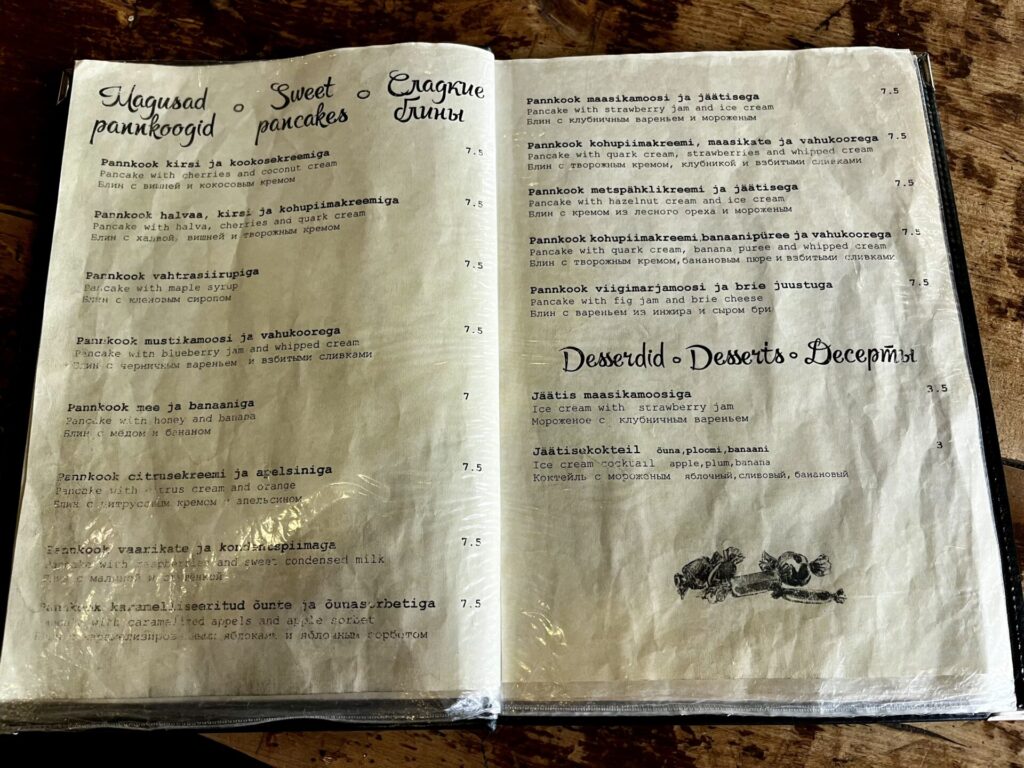 Magusad pannkoogid o Sweet pancakes o Сладкие блины
Pannkook kirsi ja kookosekreemiga 7.5
Pancake with cherries and coconut cream
Блин с вишней и кокосовым кремом
Pannkook halvaa, kirsi ja kohupiimakreemiga 7.5
Pancake with halva, cherries and quark cream
Блин с халвой, вишней и творожным кремом
Pannkook vahtrasiirupiga 7.5
Pancake with maple syrup
Блин с кленовым сиропом
Pannkook mustikamoosi ja vahukoorega 7.5
Pancake with blueberry jam and whipped cream
Блин с черничным вареньем и взбитыми сливками
Pannkook mee ja banaaniga 7
Pancake with honey and banana
Блин с мёдом и бананом
Pannkook citrusekreemi ja apelsiniga 7.5
Pancake with citrus cream and orange
Блин с цитрусовым кремом и апельсином
Pannkook vaarikate ja kondentspiimaga 7.5
Pancake with raspberries and sweet condensed milk
Блин с малиной и сгущёнкой
Pannkook karamelliseeritud õunte ja õunasorbetiga 7.5
Pancake with caramelized appels and apple sorbet
Блин с карамелизированными яблоками и яблочным сорбетом
Pannkook maasikamoosi ja jäätisega 7.5
Pancake with strawberry jam and ice cream
Блин с клубничным вареньем и мороженым
Pannkook kohupiimakreemi, maasikate ja vahukoorega 7.5
Pancake with quark cream, strawberries and whipped cream
Блин с творожным кремом, клубникой и взбитыми сливками
Pannkook metspähklikreemi ja jäätisega 7.5
Pancake with hazelnut cream and ice cream
Блин с кремом из лесного ореха и мороженым
Pannkook kohupiimakreemi,banaanipüree ja vahukoorega 7.5
Pancake with quark cream, banana puree and whipped cream
Блин с творожным кремом,банановым пюре и взбитыми сливками
Pannkook viigimarjamoosi ja brie juustuga 7.5
Pancake with fig jam and brie cheese
Блин с вареньем из инжира и сыром бри
Desserdid o Desserts o Десерты
Jäätis maasikamoosiga 3.5
Ice cream with strawberry jam
Мороженое с клубничным вареньем
Jäätisekokteil õuna,ploomi,banaani 3
Ice cream cocktail apple,plum,banana
Коктейль с мороженым яблочный,сливовый,банановый